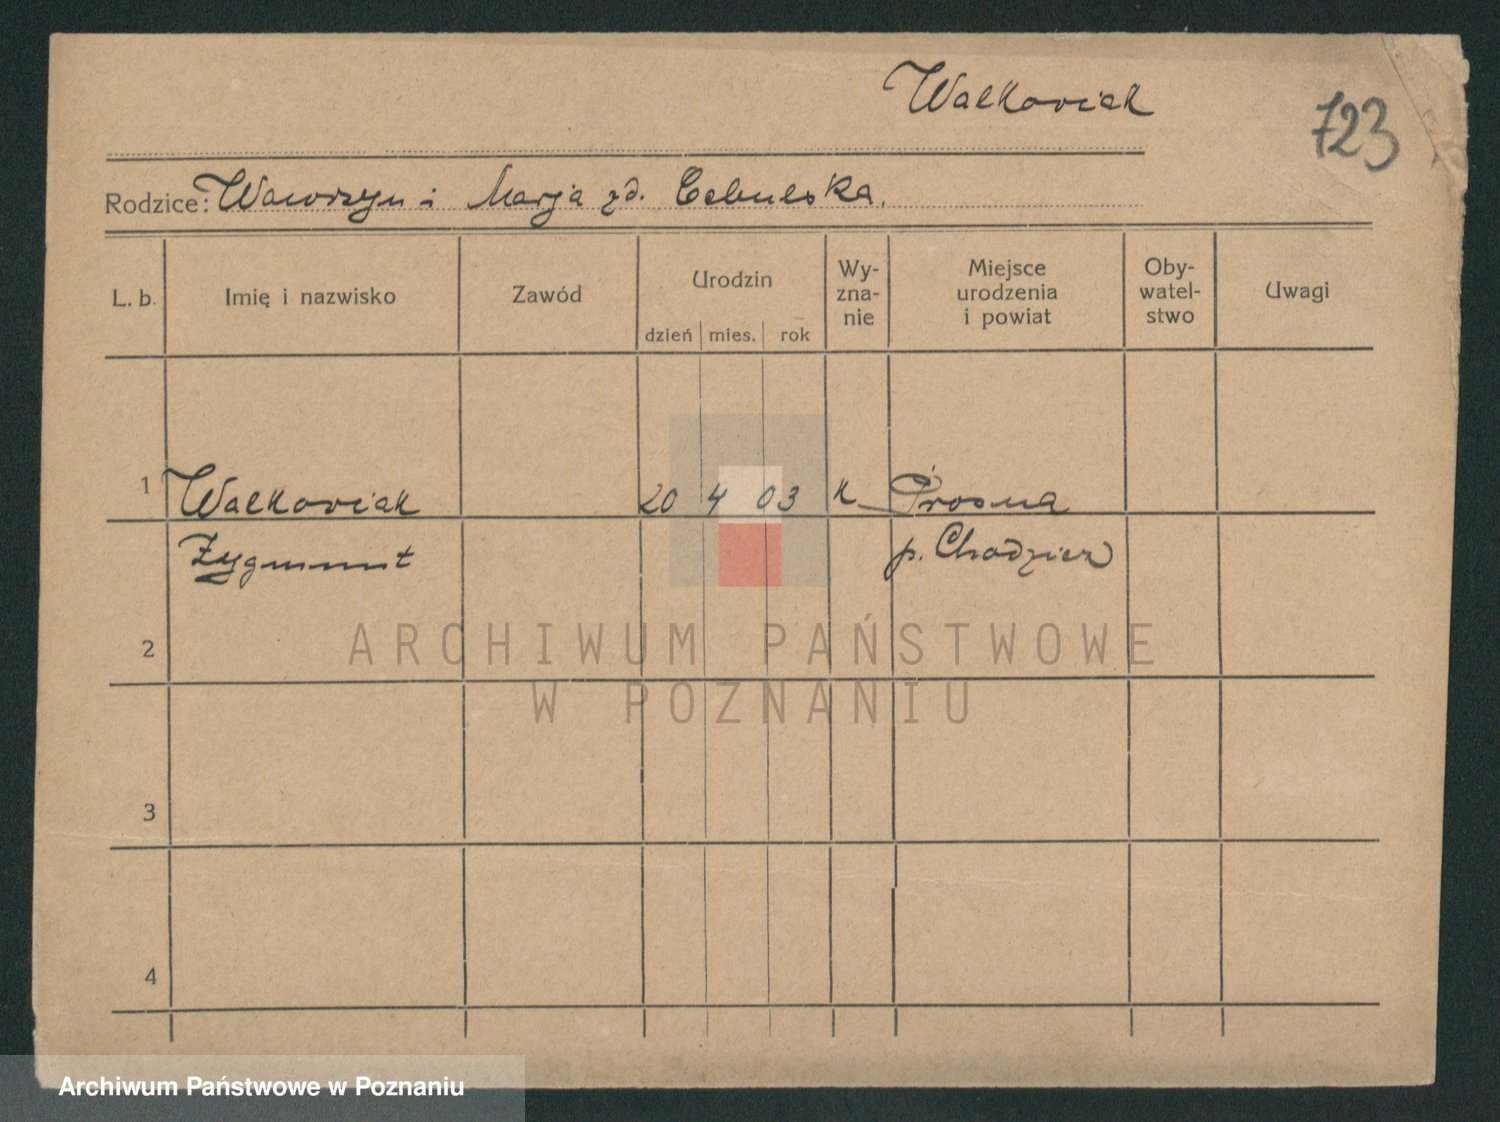 Walkoviak
723
Rodzice: Wawrzyn i Marja zd. Cebulska.
L. b. Imię i nazwisko Zawód Urodzin dzień mies. rok Wy-zna-nie Miejsce urodzenia i powiat Oby-watel-stwo Uwagi
1 Walkoviak 20 4 03 k Prosna
Zygmunt p. Chodzież
2
ARCHIWUM PAŃSTWOWE
W POZNANIU
3
4
Archiwum Państwowe w Poznaniu